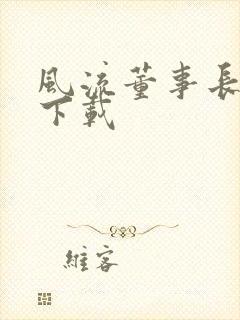 風流董事長
下載
維客